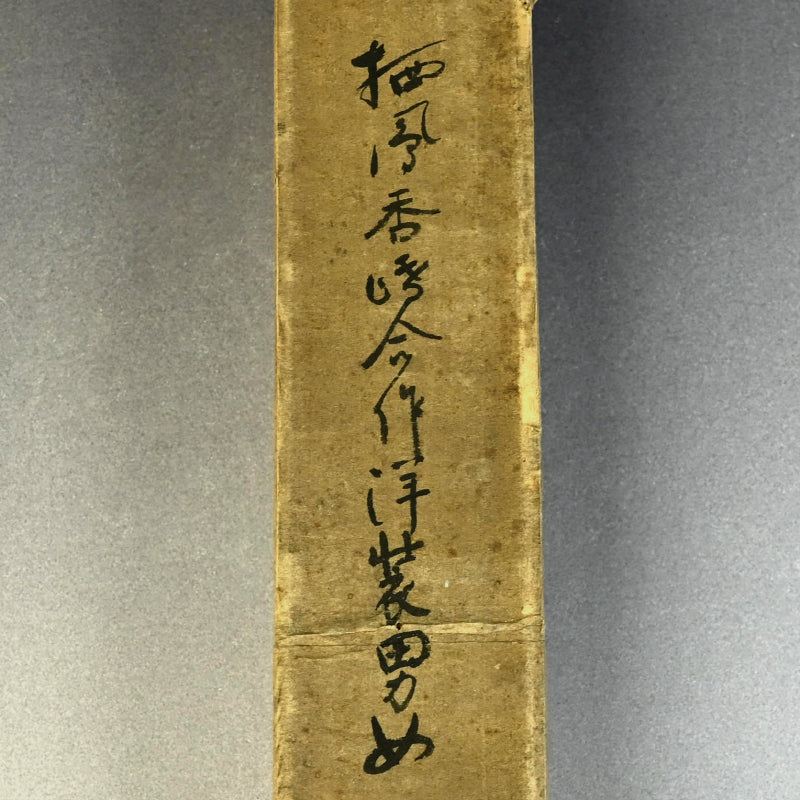 栖鳳香嶠合作洋装男女